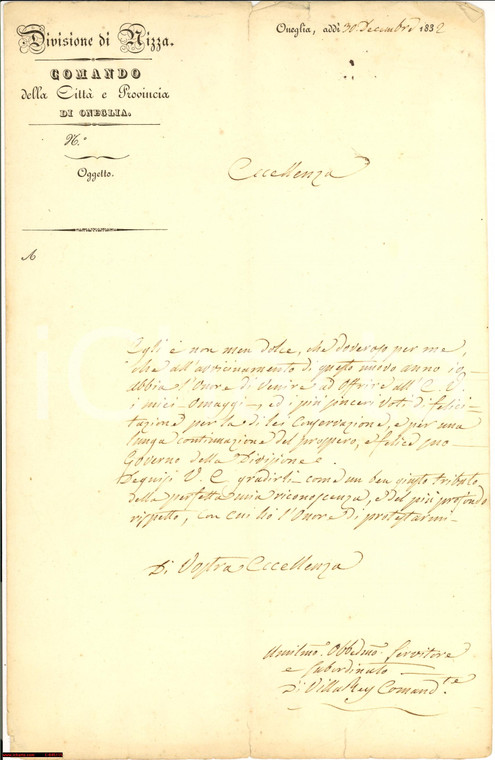 Divisione di Nizza.
COMANDO
della Città e Provincia
DI ONEGLIA.
N.º
Oggetto.
Oneglia, addì 30 Decembre 1832
Eccellenza
A
Egli è non men dolce, che doveroso per me,
che all'avvicinamento di questo nuovo anno io
abbia l'Onore di venire ad offrire all'E. V.
i miei omaggi, ed i più sinceri voti di felici-
tazione per la di lei Conservazione, e per una
lunga continuazione del prospero, e felice suo
Governo della Divisione.
Degnisi V. E. gradirli come un ben giusto tributo
della perfetta mia riconoscenza, e del più profondo
rispetto, con cui hò l'Onore di protestarmi
Di Vostra Eccellenza
Umilmo. Obbedmo. Servitore
e subordinato
Di Villa Rey Comandte.